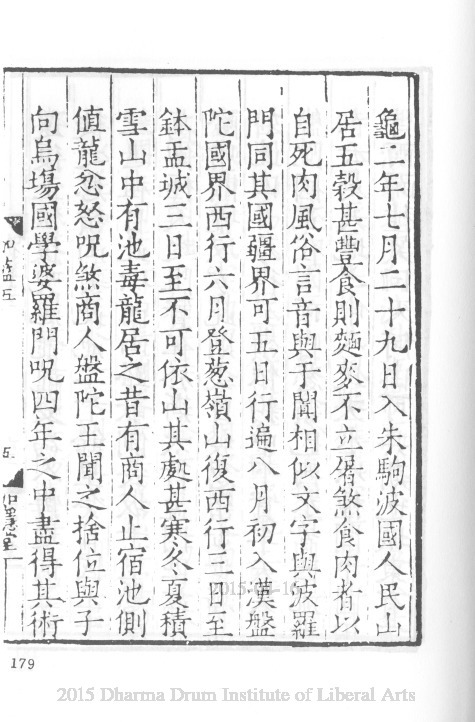 龜二年七月二十九日入朱駒波國人民山
居五穀甚豐食則麵麥不立屠煞食肉者以
自死肉風俗言音與于闐相似文字與波羅
門同其國疆界可五日行遍八月初入漢盤
陀國界西行六月登葱嶺山復西行三日至
鉢盂城三日至不可依山其處甚寒冬夏積
雪山中有池毒龍居之昔有商人止宿池側
值龍忿怒呪煞商人盤陀王聞之捨位與子
向烏場國學婆羅門呪四年之中盡得其術
伽藍五
五
如隱堂
179
2015 Dharma Drum Institute of Liberal Arts